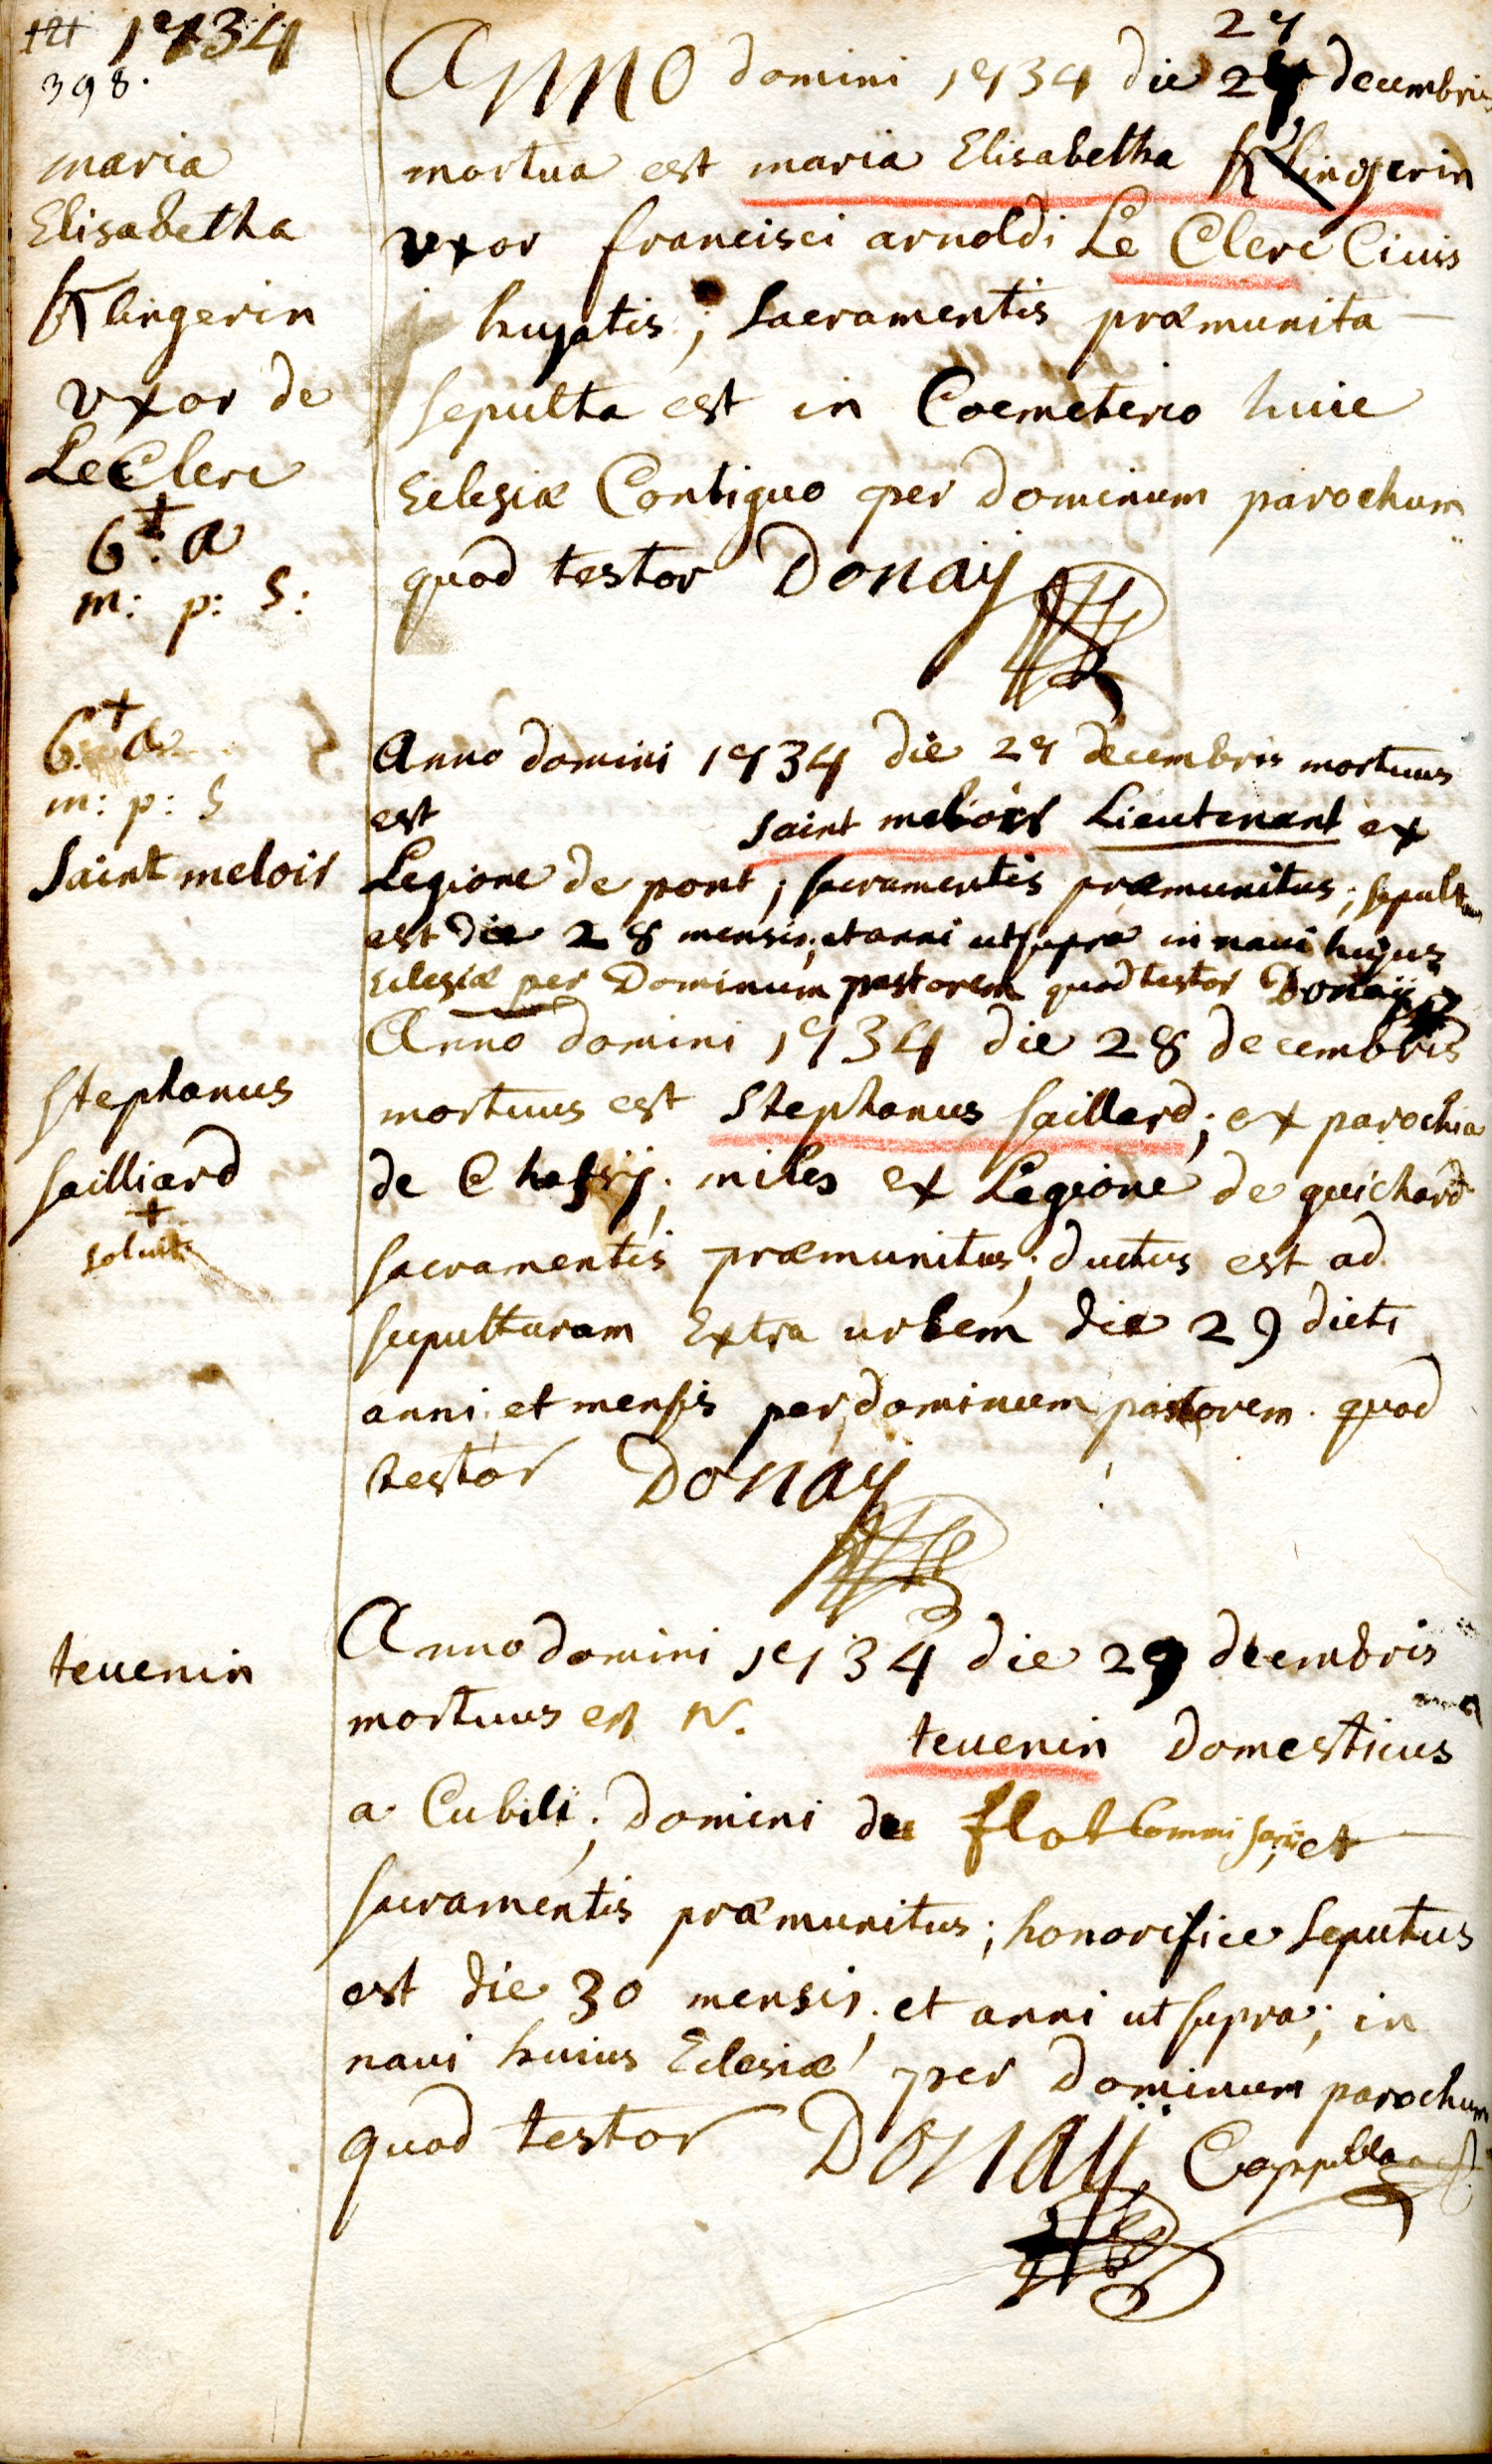 121 1734
398.
maria
Elisabetha
Klingerin
vxor de
Le Clerc
6 + : a
m: p: S:
27
Anno domini 1734 die 27 decembris
mortua est maria Elisabetha Klingerin
vxor francisci arnoldi Le Clerc Ciuis
hujatis; Sacramentis præmunita
sepulta est in Coemeterio huic
Eclesiæ Contiguo per Dominum parochum
quod testor Donaÿ
6. + a
m: p: S
Saint meloir
Anno domini 1734 die 27 decembris mortuus
est saint meloir Lieutenant ex
Legione de pont; sacramentis præmunitus; sepultus
est die 28 mensis; et anni ut supra in naui hujus
Eclesiæ per Dominum pastorem quod testor Donaÿ
stephanus
sailliard
+
soluit
Anno domini 1734 die 28 decembris
mortuus est Stephanus saillard; ex parochia
de Chassij; miles ex Legione de guichard
sacramentis præmunitus; ductus est ad
sepulturam Extra urbem die 29 dicti
anni et mensis per dominum pastorem quod
testor Donaÿ
teuenin
Anno domini 1734 die 29 decembris
mortuus est N. teuenin Domesticus
a Cubili; Domini du flot Commisarii; et
sacramentis præmunitus; honorifice Seputus
est die 30 mensis; et anni ut supra; in
naui huius Eclesiæ per Dominum parochum
quod testor Donaÿ